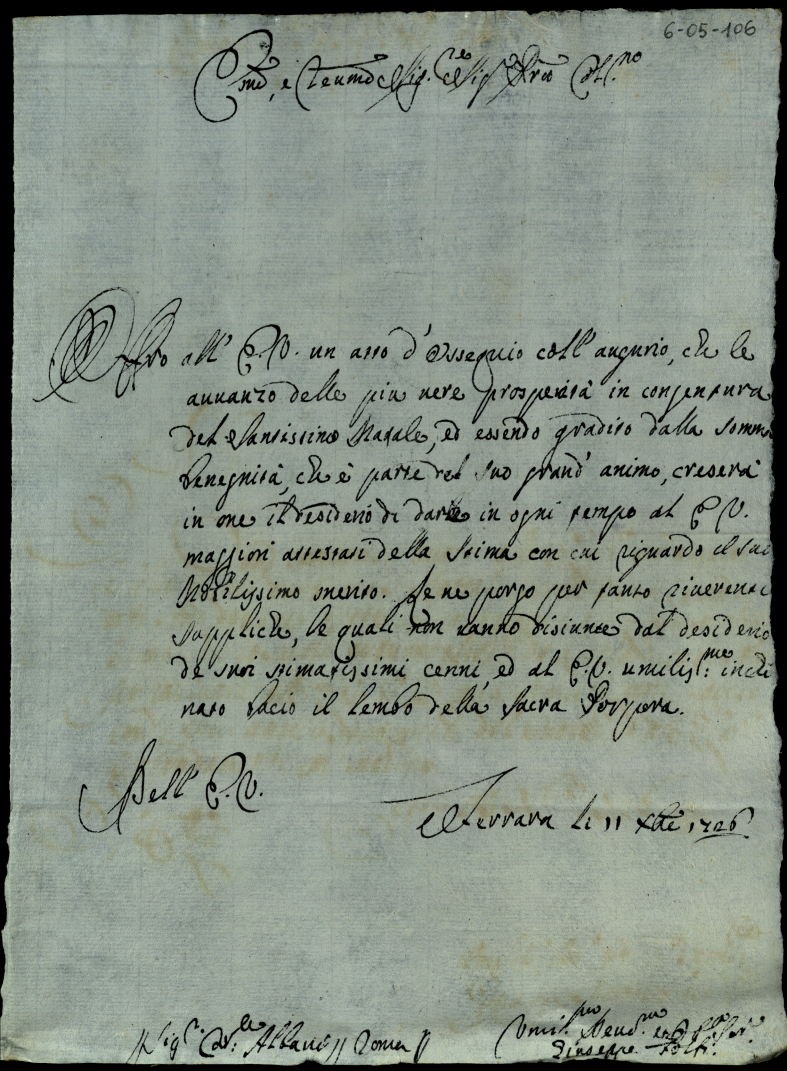 6-05-106
Em̃o, e Reumo Sig. Sig.re Pr̃on Col.mo
Offro all' E. V. un atto d'ossequio coll' augurio, che le
auuanzo delle piu uere prosperità in congentura
del Santissimo Natale, ed essendo gradito dalla somma
benegnità, che è parte del suo grand' animo, crescerà
in me il desiderio di darle in ogni tempo al E. V.
maggiori attestati della stima con cui riguardo il suo
Nobilissimo merito. Le ne porgo per tanto riuerenti
suppliche, le quali non uanno disiunte dal desiderio
de suoi stimatissimi cenni, ed al E. V. umiliss.me inchi
nato bacio il lembo della Sacra Porpora.
Dell' E. V.
Ferrara li 11 Xbre 1726.
Sig.r Car.le Albani Roma
Umil.mo Deuo.mo ed Obl.mo Ser.
Giuseppe